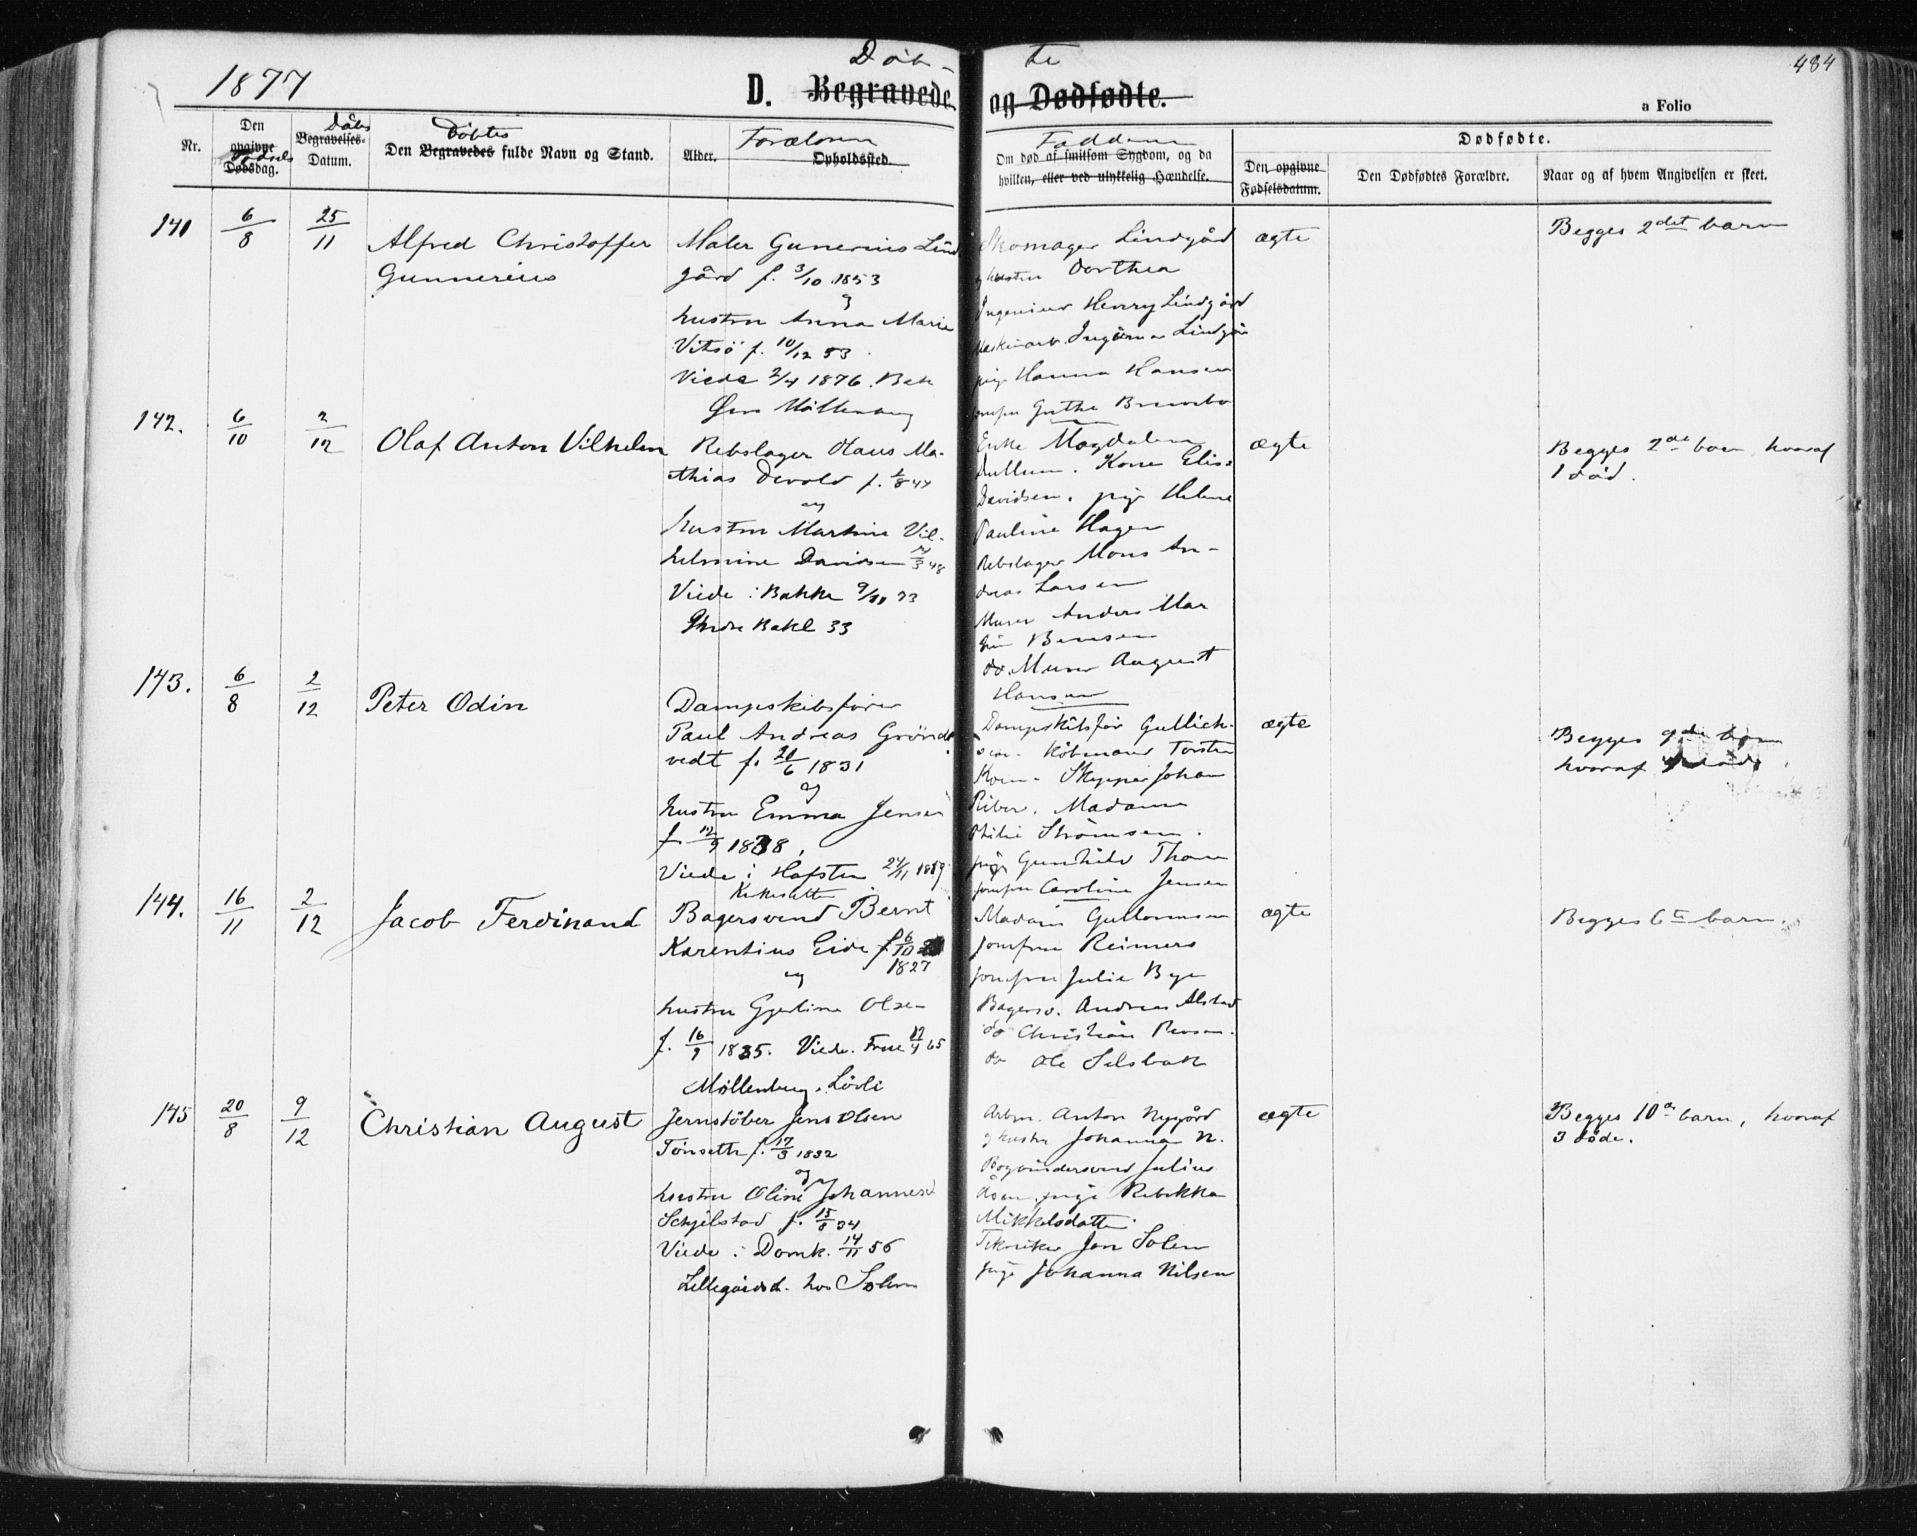 1877
Døb-
te
484
D. Begravede og Dødfødte.
a Folio
Nr.
Den opgivne Dødsdag.
Fødsels
Begravelses-Datum.
Dåbs
Den Begravedes fulde Navn og Stand.
Døbtes
Alder.
Forældren
Opholdssted.
Om død af smitsom Sygdom, og da
hvilken, eller ved ulykkelig Hændelse.
Den opgivne
Fødselsdatum.
Dødfødte.
Den Dødfødtes Forældre.
Naar og af hvem Angivelsen er skeet.
141 6/8 25/11
Alfred Christoffer
Gunnerius
Maler Gunerius Lind
gård f. 3/10 1853
og
hustru Anna Marie
Vitsø f. 10/12 53
Viede 2/4 1876. Bak
Skomager Lindgård
og hustru Dorthea
Ingeniør Henry Lindgård
pige Hanna Hansen
ægte
Begges 2det barn
142. 6/10 2/12
Olaf Anton Vilhelm
Rebslager Olaus Ma-
thias Devold f. 44
og
hustru Martine Vil-
helmine Davidsen 48
Viede i Bakke 73
Bakl 33
Enke Magdalena
Kone Elise
Davidsen. pige Helene
Pauline Hagen
Rebslager Mons An-
dreas Larsen
Murer Anders Mar
do. Murer August
Hansen
ægte
Begges 2de barn hvoraf
1 død.
143. 6/8 2/12
Peter Odin
Dampskibsfører
Paul Andreas Grönd
vedt f. 20/6 1831
og
hustru Emma Jensen
f. 12/9 1838,
Viede i Hafsten
Dampskibsfør Gullich-
sen. Købmand Torsten
Skipper Johan
Madame
Strömsen.
pige Gunhild Thom
jomfru Caroline Jensen
ægte
Begges 9de barn
hvoraf
144. 16/11 2/12
Jacob Ferdinand
Bagersvend Bernt
Karentius Eide f. 6/10
1827
og
hustru Gjertine Olsen
f. 16/9 1835. Viede. Frue 65
Møllenberg. Løvli
Madam Guttormsen
Jomfru Reimers
jomfru Julie Bye
Bagersv. Andreas Alstad
do Christian
do Ole Selsbak
ægte
Begges 6te barn.
145 20/8 9/12
Christian August
Jernstöber Jens Olsen
Tönseth f. 17/3 1832
og
hustru Oline Johannesd
Schjelstad f. 15/8 34
Viede i Domk. 14/11 56
Lillegårdsb. hos Solem
Arbm. Anton Nygård
og hustru Johanna N.
Bogbindersvend Julius
pige Rebekka
Mikkelsdatter
Tekniker Jon Solem
pige Johanna Nilsen
ægte
Begges 10de barn, hvoraf
3 døde.